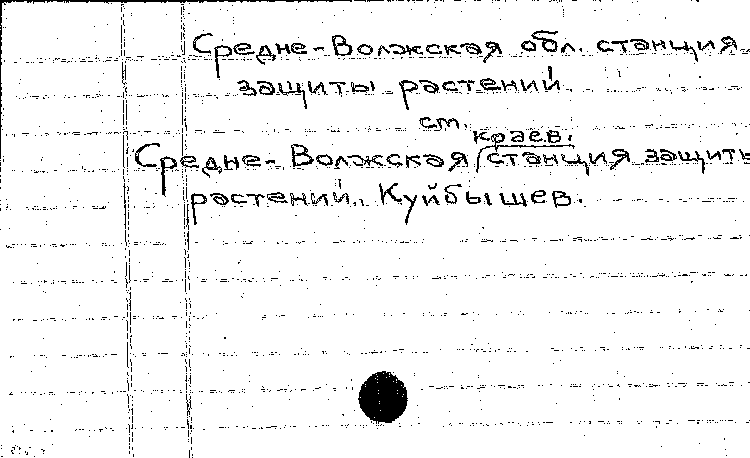 Средне-Волжская обл. станция
защиты растений
см.
краев.
Средне-Волжская станция защиты
растений. Куйбышев.